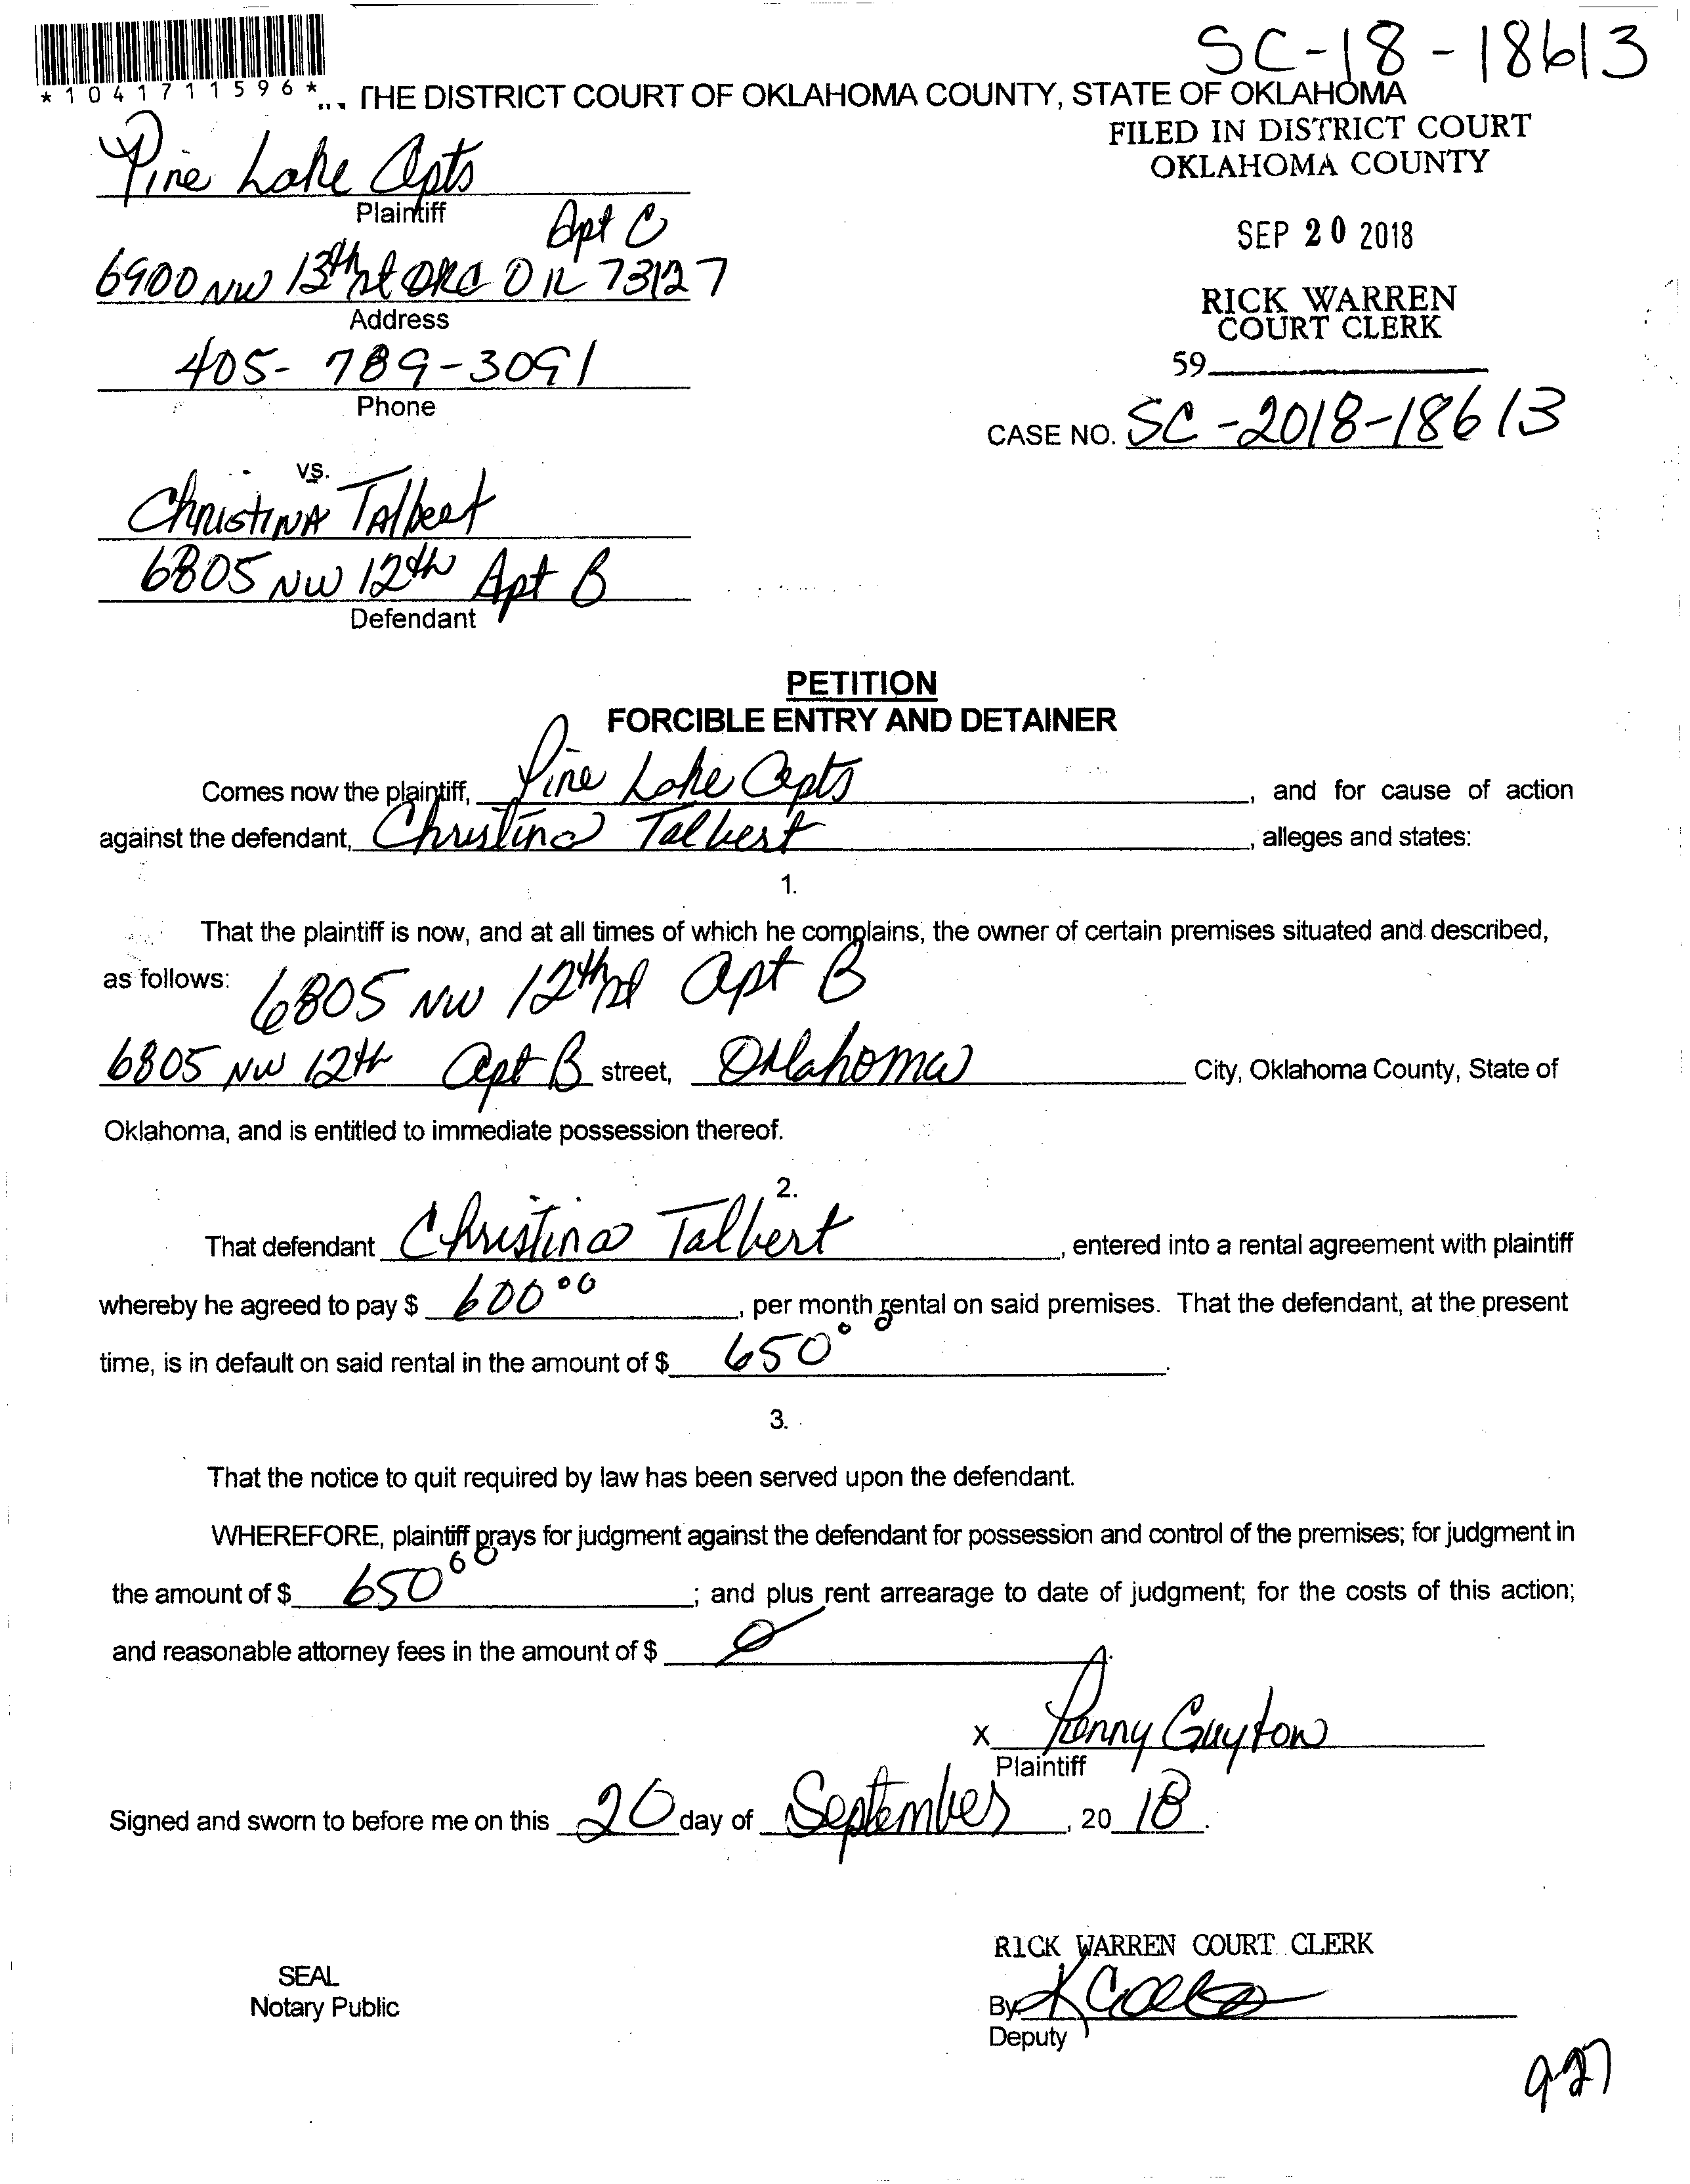 SC-18-18613
*1041711596*
THE DISTRICT COURT OF OKLAHOMA COUNTY, STATE OF OKLAHOMA
FILED IN DISTRICT COURT
OKLAHOMA COUNTY
Pine Lake Apts
Plaintiff
SEP 20 2018
Apt C
6900 NW 13th st OKC OK 73127
Address
RICK WARREN
COURT CLERK
405-789-3091
Phone
59
CASE NO. SC-2018-18613
vs.
Christina Talbert
6805 NW 12th Apt B
Defendant
PETITION
FORCIBLE ENTRY AND DETAINER
Comes now the plaintiff, Pine Lake Apts, and for cause of action
against the defendant, Christina Talbert, alleges and states:
1.
That the plaintiff is now, and at all times of which he complains, the owner of certain premises situated and described,
as follows: 6805 NW 12th st Apt B
6805 NW 12th Apt B street, Oklahoma City, Oklahoma County, State of
Oklahoma, and is entitled to immediate possession thereof.
2.
That defendant Christina Talbert, entered into a rental agreement with plaintiff
whereby he agreed to pay $ 600 00, per month rental on said premises. That the defendant, at the present
time, is in default on said rental in the amount of $ 650 00.
3.
That the notice to quit required by law has been served upon the defendant.
WHEREFORE, plaintiff prays for judgment against the defendant for possession and control of the premises; for judgment in
the amount of $ 650 00; and plus rent arrearage to date of judgment; for the costs of this action;
and reasonable attorney fees in the amount of $ 0.
X Penny Guyton
Plaintiff
Signed and sworn to before me on this 20 day of September, 20 18.
RICK WARREN COURT CLERK
SEAL
Notary Public
By
Deputy
9-27